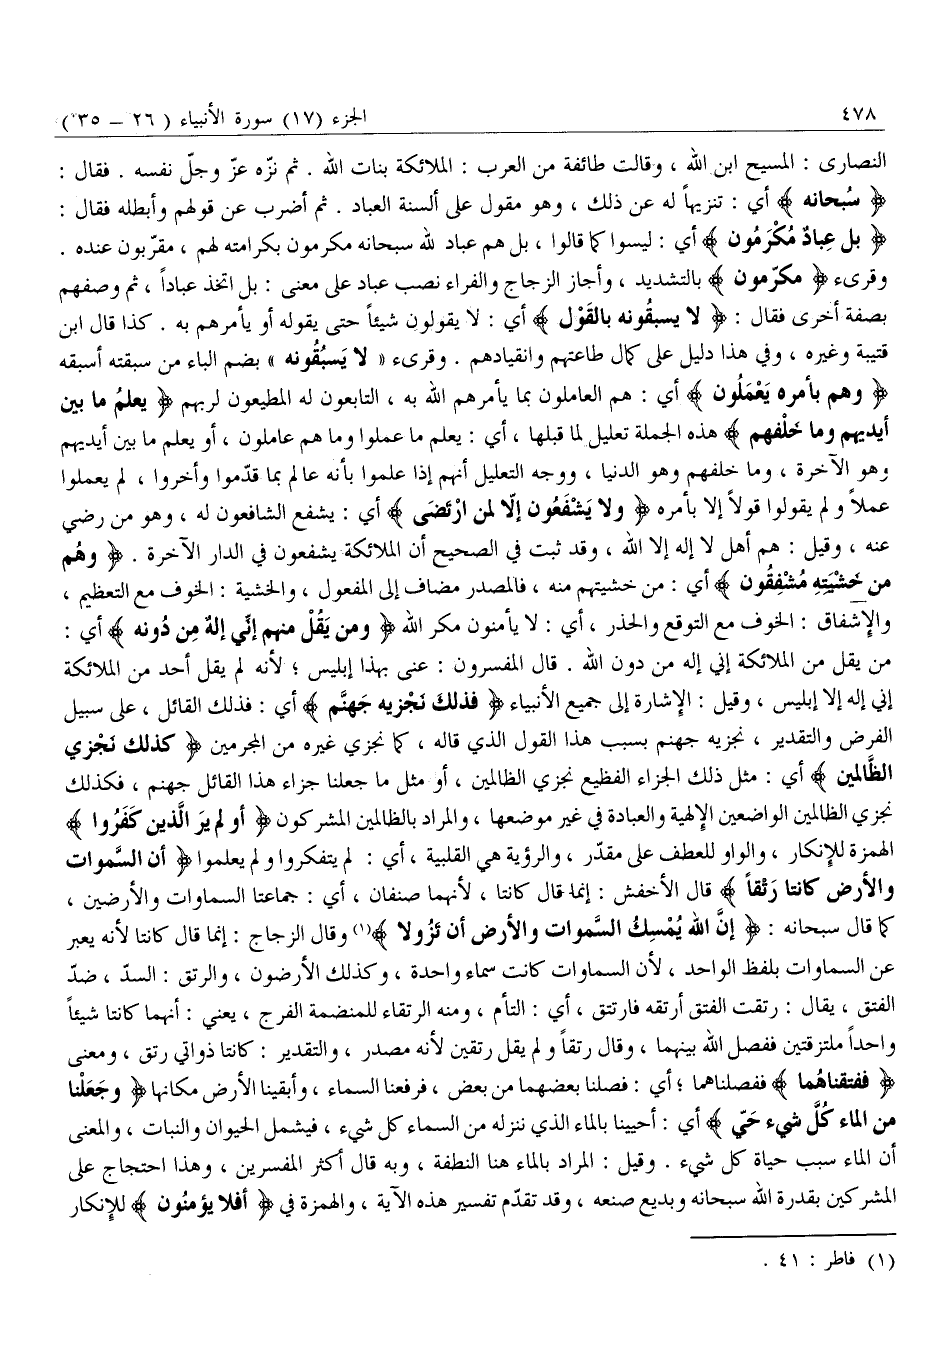 ٤٧٨ الجزء (١٧) سورة الأنبياء ( ٢٦ – ٣٥ )
النصارى : المسيح ابن الله ، وقالت طائفة من العرب : الملائكة بنات الله . ثم نزّه عزّ وجلّ نفسه . فقال :
﴿ سُبحانه ﴾ أي : تنزيهاً له عن ذلك ، وهو مقول على ألسنة العباد . ثم أضرب عن قولهم وأبطله فقال :
﴿ بل عِبادٌ مُكْرَمُون ﴾ أي : ليسوا كما قالوا ، بل هم عباد لله سبحانه مكرمون بكرامته لهم ، مقرّبون عنده .
وقرىء ﴿ مكرّمون ﴾ بالتشديد ، وأجاز الزجاج والفراء نصب عباد على معنى : بل اتخذ عباداً ، ثم وصفهم
بصفة أخرى فقال : ﴿ لا يسبقُونه بالقَوْل ﴾ أي : لا يقولون شيئاً حتى يقوله أو يأمرهم به . كذا قال ابن
قتيبة وغيره ، وفي هذا دليل على كمال طاعتهم وانقيادهم . وقرىء « لا يَسبُقُونه » بضم الباء من سبقته أسبقه
﴿ وهم بأمره يَعْمَلُون ﴾ أي : هم العاملون بما يأمرهم الله به ، التابعون له المطيعون لربهم ﴿ يعلمُ ما بين
أيديهم وما خَلْفهم ﴾ هذه الجملة تعليل لما قبلها ، أي : يعلم ما عملوا وما هم عاملون ، أو يعلم ما بين أيديهم
وهو الآخرة ، وما خلفهم وهو الدنيا ، ووجه التعليل أنهم إذا علموا بأنه عالم بما قدّموا وأخروا ، لم يعملوا
عملاً ولم يقولوا قولاً إلا بأمره ﴿ ولا يَشْفَعُون إلّا لمن ارْتَضَى ﴾ أي : يشفع الشافعون له ، وهو من رضي
عنه ، وقيل : هم أهل لا إله إلا الله ، وقد ثبت في الصحيح أن الملائكة يشفعون في الدار الآخرة . ﴿ وهُم
من خَشْيَتِهِ مُشْفِقُون ﴾ أي : من خشيتهم منه ، فالمصدر مضاف إلى المفعول ، والخشية : الخوف مع التعظيم ،
والإشفاق : الخوف مع التوقع والحذر ، أي : لا يأمنون مكر الله ﴿ ومن يَقُلْ منهم إنّي إلهٌ مِن دُونه ﴾ أي :
من يقل من الملائكة إني إله من دون الله . قال المفسرون : عنى بهذا إبليس ؛ لأنه لم يقل أحد من الملائكة
إني إله إلا إبليس ، وقيل : الإشارة إلى جميع الأنبياء ﴿ فذلك نَجْزيه جَهنَّم ﴾ أي : فذلك القائل ، على سبيل
الفرض والتقدير ، نجزيه جهنم بسبب هذا القول الذي قاله ، كما نجزي غيره من المجرمين ﴿ كذلك نَجْزي
الظَّالمين ﴾ أي : مثل ذلك الجزاء الفظيع نجزي الظالمين ، أو مثل ما جعلنا جزاء هذا القائل جهنم ، فكذلك
نجزي الظالمين الواضعين الإلهية والعبادة في غير موضعها ، والمراد بالظالمين المشركون ﴿ أو لم يرَ الَّذين كَفَرُوا ﴾
الهمزة للإنكار ، والواو للعطف على مقدّر ، والرؤية هي القلبية ، أي : لم يتفكروا ولم يعلموا ﴿ أن السَّموات
والأرض كانتا رَتْقاً ﴾ قال الأخفش : إنما قال كانتا ، لأنهما صنفان ، أي : جماعتا السماوات والأرضين ،
كما قال سبحانه : ﴿ إنَّ الله يُمْسِكُ السَّموات والأرض أن تَزُولا ﴾(١) وقال الزجاج : إنما قال كانتا لأنه يعبر
عن السماوات بلفظ الواحد ، لأن السماوات كانت سماء واحدة ، وكذلك الأرضون ، والرتق : السدّ ، ضدّ
الفتق ، يقال : رتقت الفتق أرتقه فارتتق ، أي : التأم ، ومنه الرتقاء للمنضمة الفرج ، يعني : أنهما كانتا شيئاً
واحداً ملتزقتين ففصل الله بينهما ، وقال رتقاً ولم يقل رتقين لأنه مصدر ، والتقدير : كانتا ذواتي رتق ، ومعنى
﴿ ففتقناهُما ﴾ ففصلناهما ؛ أي : فصلنا بعضهما من بعض ، فرفعنا السماء ، وأبقينا الأرض مكانها ﴿ وجَعَلْنا
من الماء كُلَّ شيء حَيّ ﴾ أي : أحيينا بالماء الذي ننزله من السماء كل شيء ، فيشمل الحيوان والنبات ، والمعنى
أن الماء سبب حياة كل شيء . وقيل : المراد بالماء هنا النطفة ، وبه قال أكثر المفسرين ، وهذا احتجاج على
المشركين بقدرة الله سبحانه وبديع صنعه ، وقد تقدّم تفسير هذه الآية ، والهمزة في ﴿ أفلا يؤمنون ﴾ للإنكار
(١) فاطر : ٤١ .